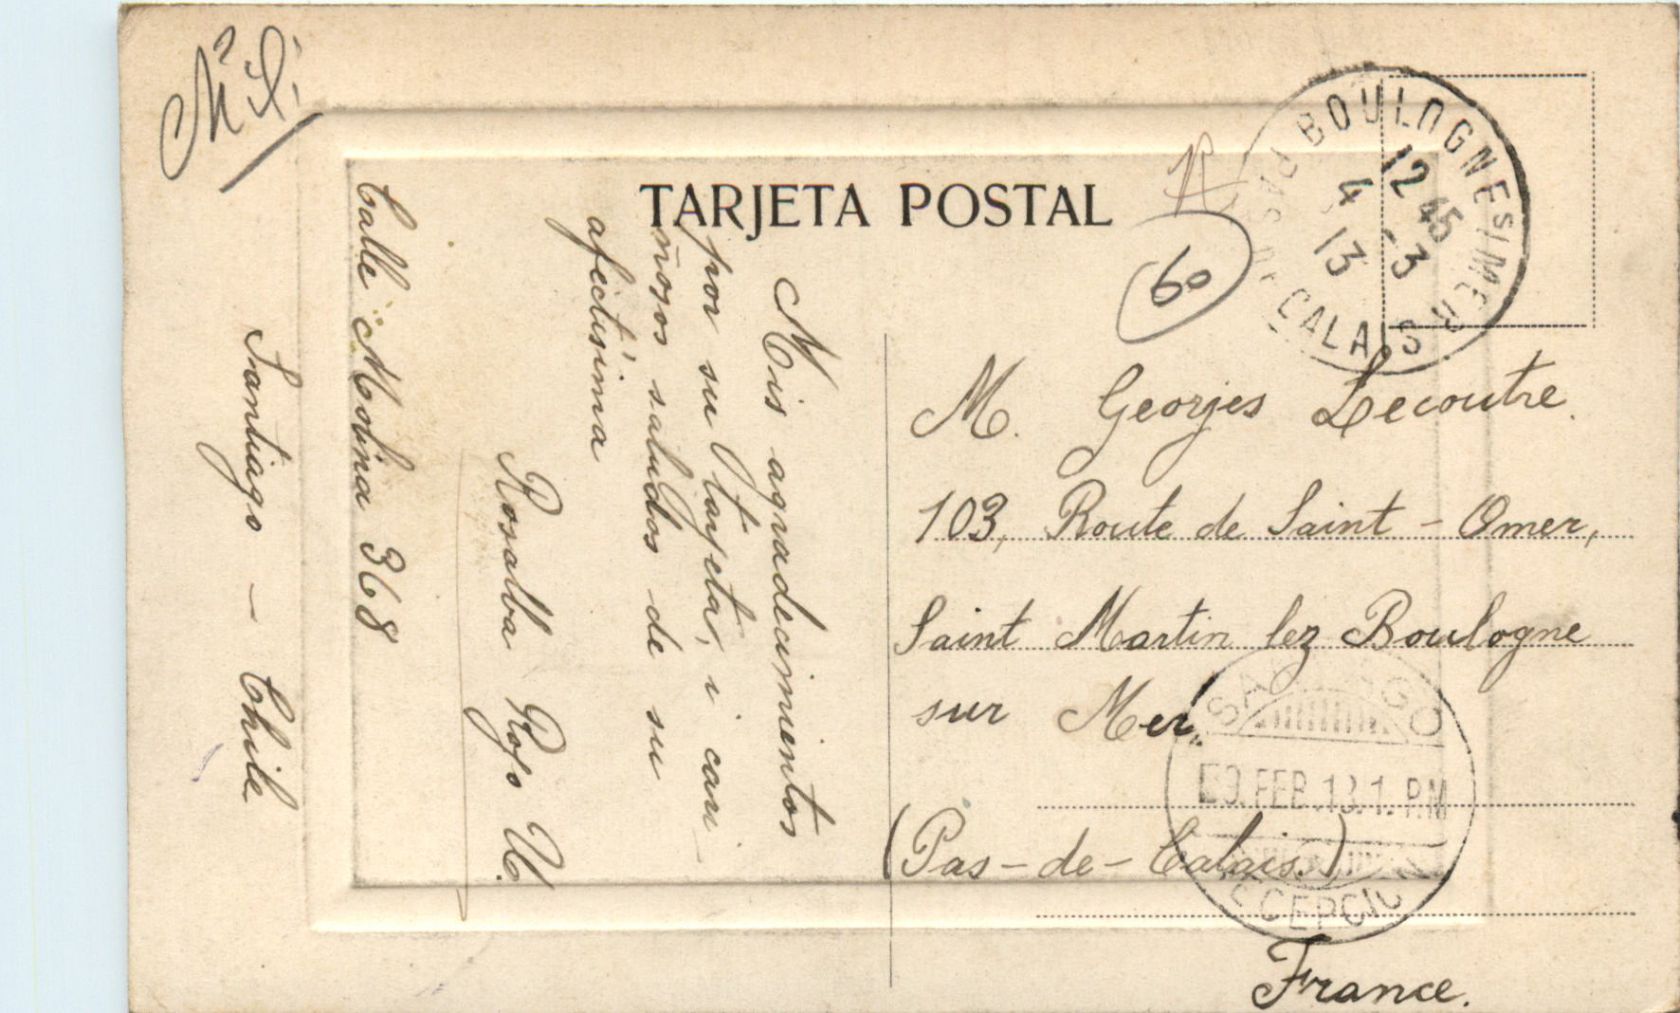 TARJETA POSTAL
60
BOULOGNE S/ MER
12 45
4 - 3
13
PAS DE CALAIS
M. Georges Lecoutre.
103, Route de Saint-Omer,
Saint Martin lez Boulogne
sur Mer.
(Pas-de-Calais.)
France.
SANTIAGO
FEB.13.1.PM
RECEPCION
Mis agradecimientos
por su tarjeta, i cari-
ñosos saludos de su
afectísima
Rosalba Rojo U.
Calle Molina 368
Santiago - Chile